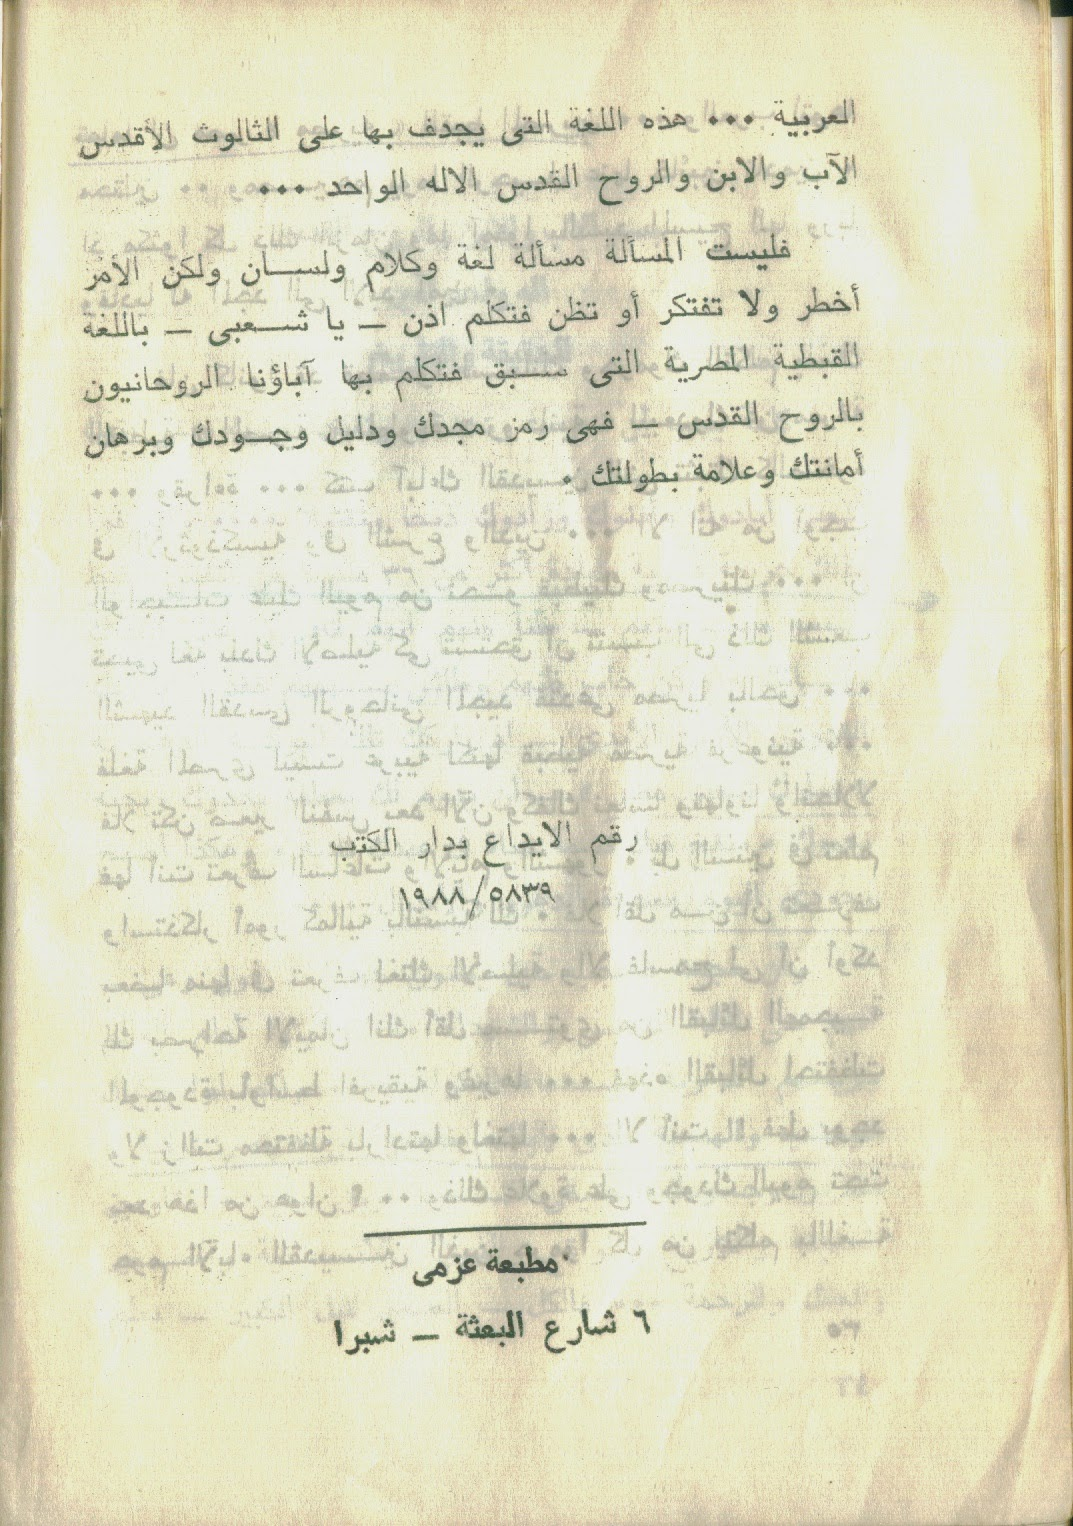 العربية ... هذه اللغة التى يجدف بها على الثالوث الأقدس
الآب والابن والروح القدس الاله الواحد ...
فليست المسألة مسألة لغة وكلام ولسان ولكن الأمر
أخطر ولا تفتكر أو تظن فتكلم اذن — يا شعبى — باللغة
القبطية المصرية التى سبق فتكلم بها آباؤنا الروحانيون
بالروح القدس — فهى رمز مجدك ودليل وجودك وبرهان
أمانتك وعلامة بطولتك .
رقم الايداع بدار الكتب
١٩٨٨/٥٨٣٩
مطبعة عزمى
٦ شارع البعثة — شبرا